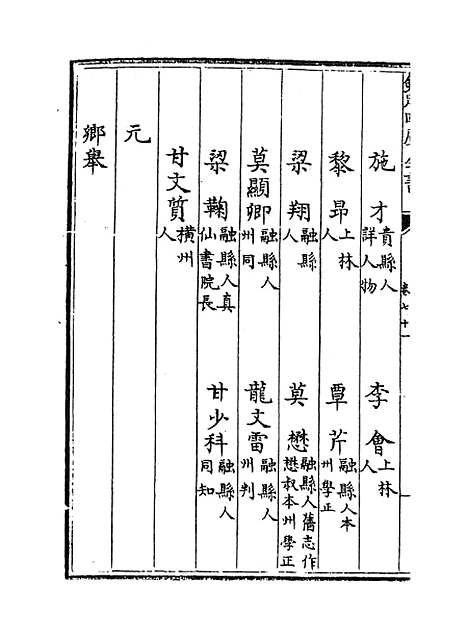 施才貴縣人詳人物 李會上林人
黎昂上林人 覃芹融縣人本州學正
梁翔融縣人 莫懋融縣人舊志作懋叔本州學正
莫顯卿融縣人州同 龍文雷融縣人州判
梁鞠融縣人真仙書院長 甘少科融縣人同知
甘文質橫州人
元
鄉舉